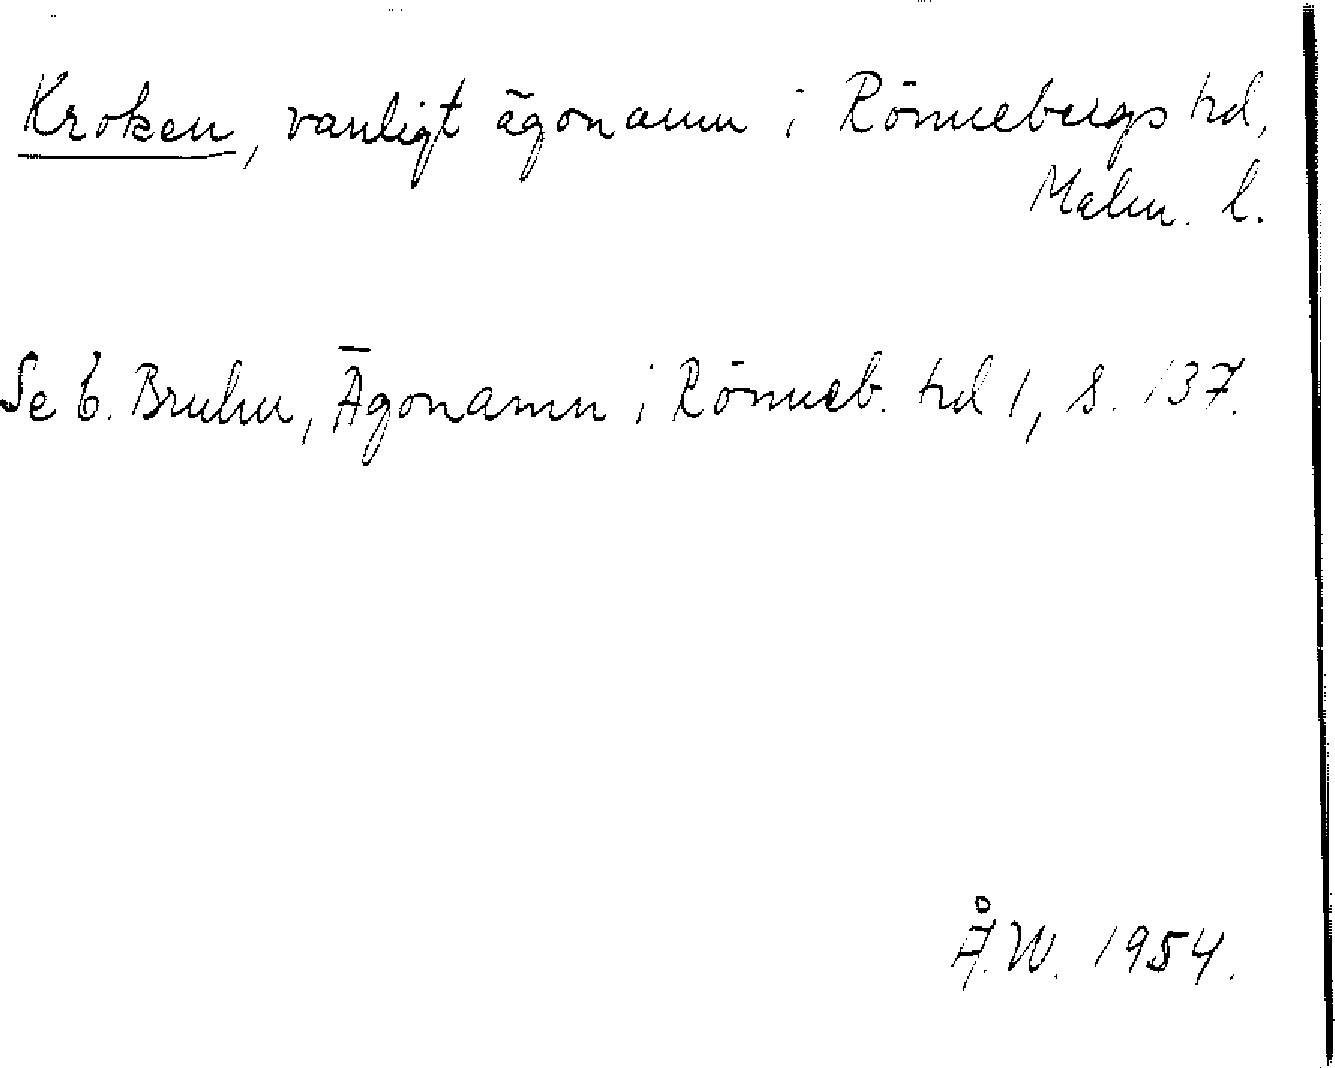 Kroken, vanligt ägonamn i Rönnebergs hd,
Malm. l.
Se E. Bruhn, Ägonamn i Rönneb. hd 1, s. 137.
Å.W. 1954.